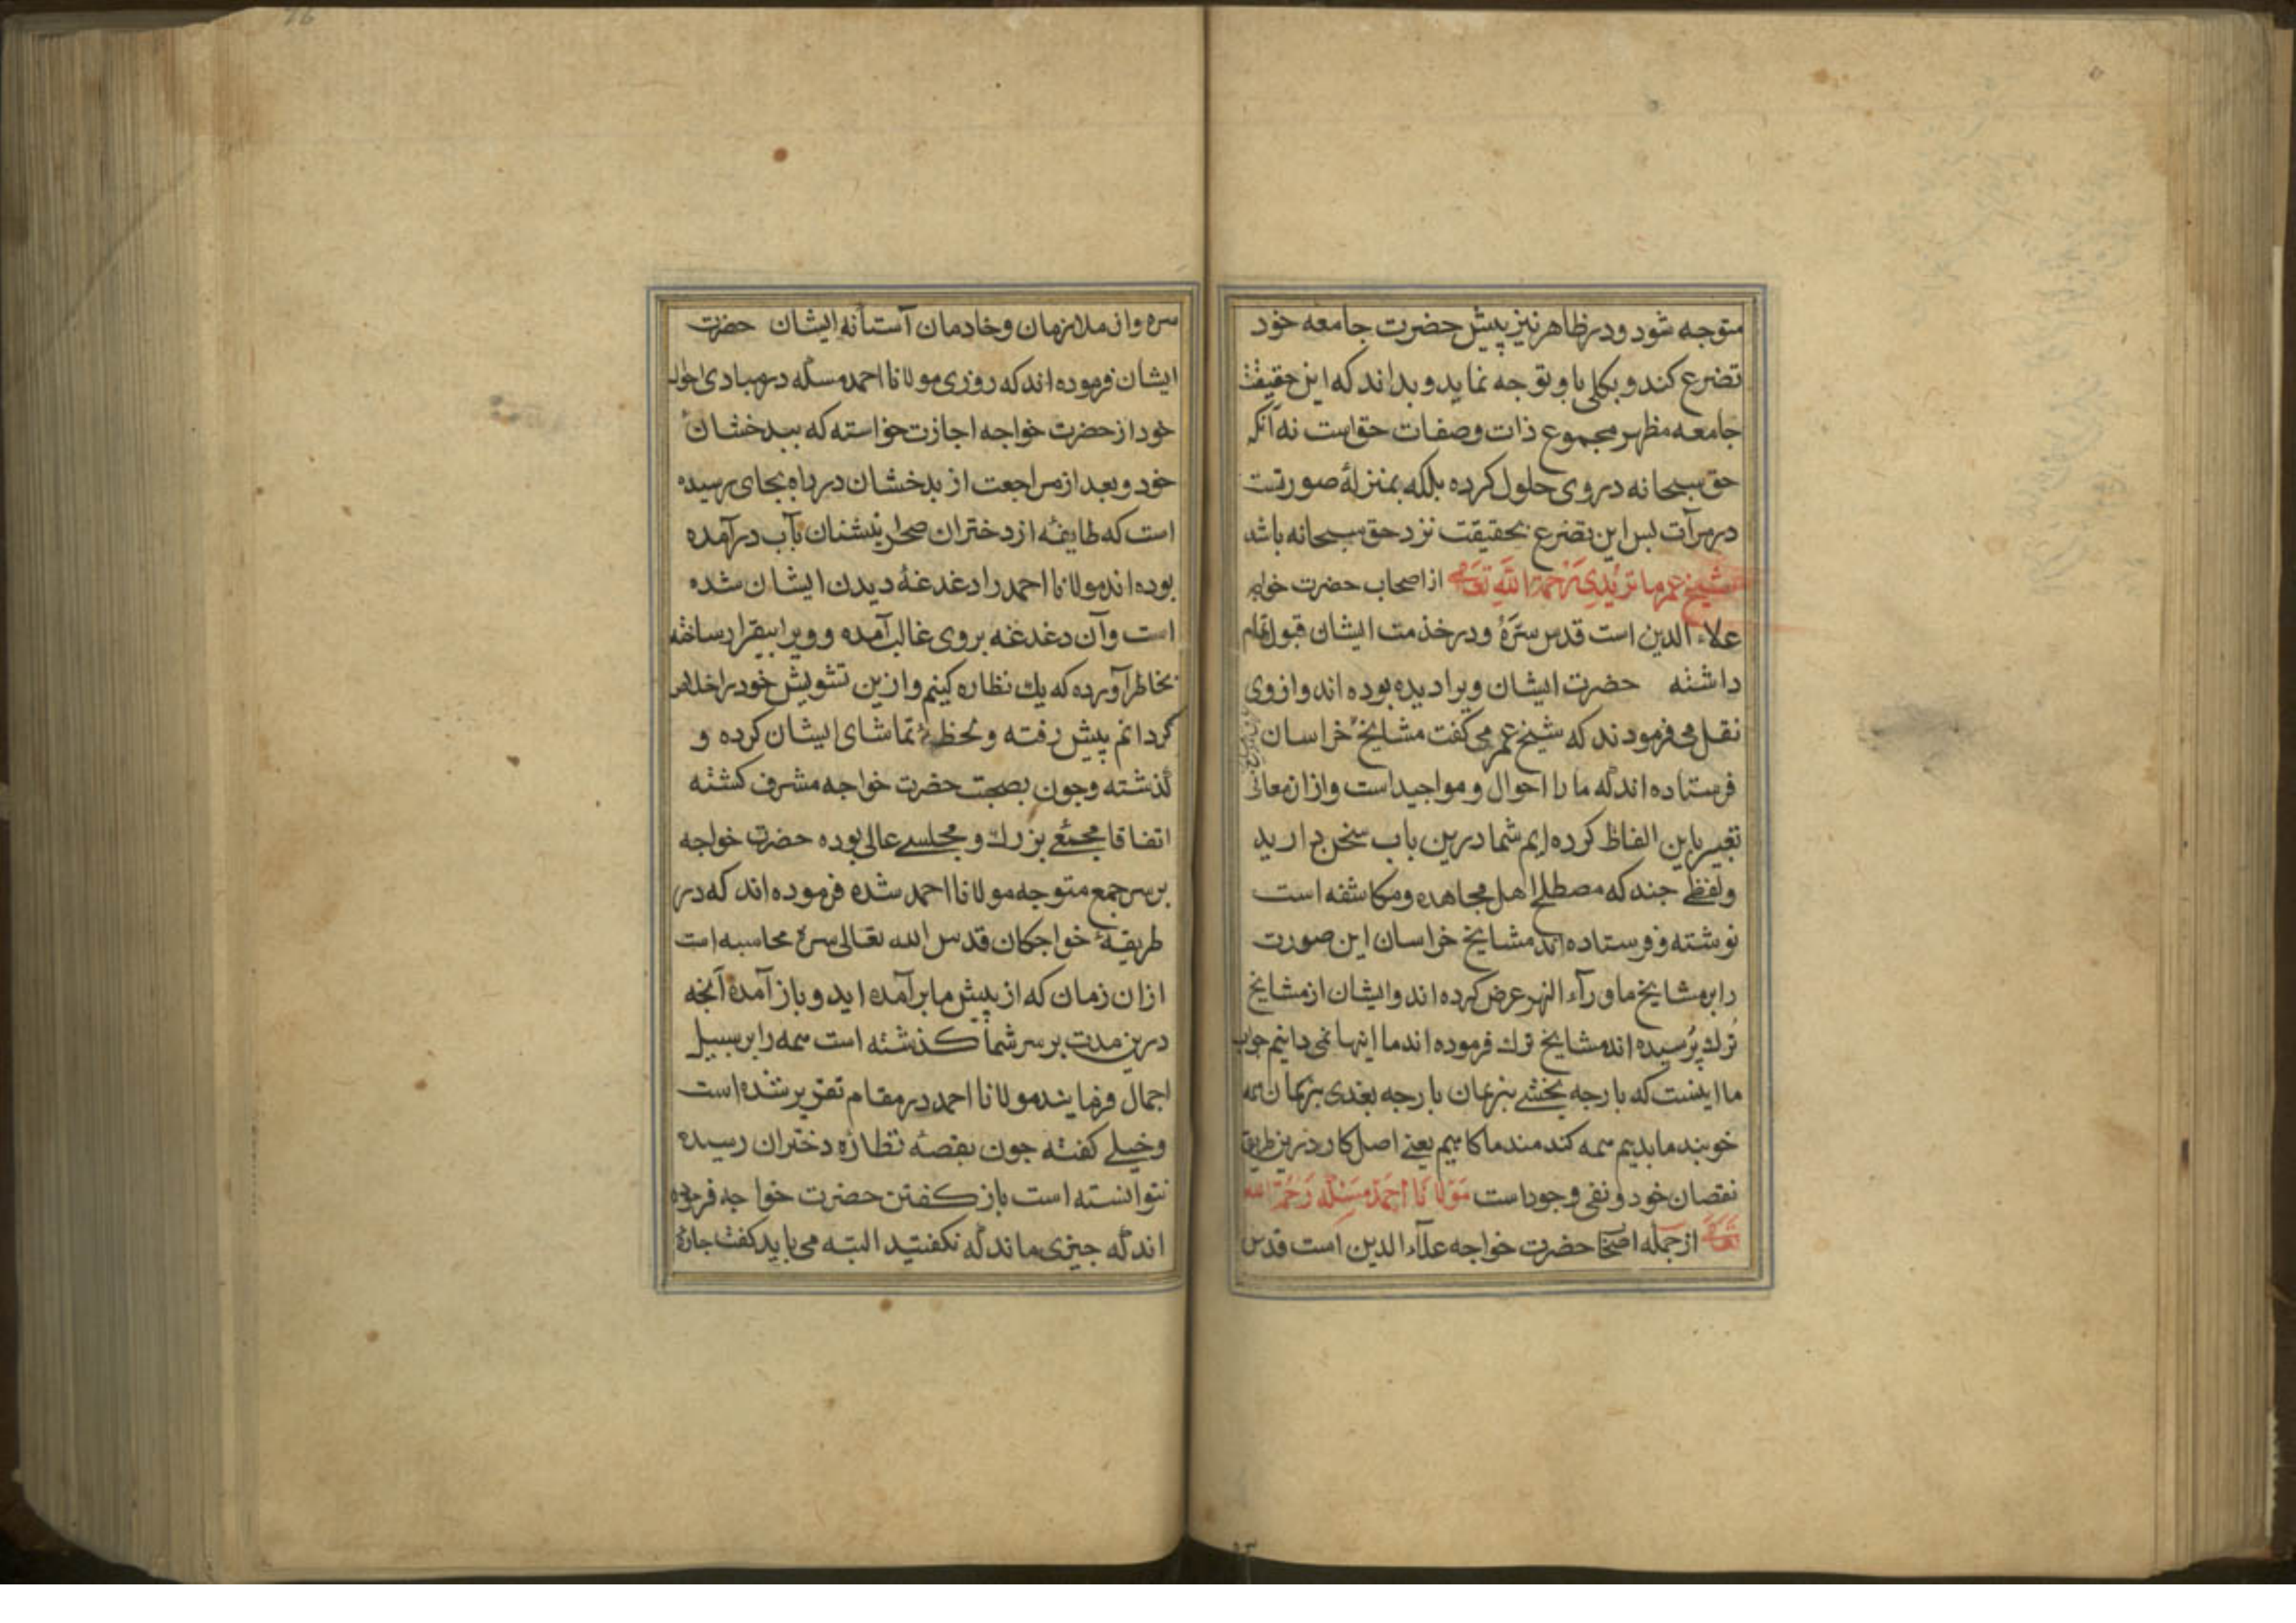 متوجه شود ودر ظاهر نیز پیش حضرت جامعه خود
تضرع کند و بکلی باو توجه نماید و بداند که این حقیقت
جامعه مظهر مجموع ذات وصفات حق است نه آنکه
حق سبحانه در وی حلول کرده بلکه بمنزلهٔ صورتست
در مرآت بس این تضرع بحقیقت نزد حق سبحانه باشد
شیخ عمر ماتریدی رحمة الله تعالی از اصحاب حضرت خواجه
علاء الدین است قدس سره ودر خدمت ایشان قبول تمام
داشته حضرت ایشان ویرا دیده بوده اند واز وی
نقل می فرمودند که شیخ عمر می کفت مشایخ خراسان
فرستاده اند که ما را احوال و مواجید است واز ان معانی
تعبیر باین الفاظ کرده ایم شما درین باب سخن دارید
ولفظی جند که مصطلح اهل مجاهده ومکاشفه است
نوشته وفرستاده اند مشایخ خراسان این صورت
را بر مشایخ ماورآء النهر عرض کرده اند وایشان از مشایخ
ترك پرسیده اند مشایخ ترك فرموده اند ما اینها نمی دانیم جواب
ما اینست که بارجه یخشی بزیمان بارجه بغدی بزیمان همه
خوبند ما بدیم همه کندمند ما کاهیم یعنی اصل کار درین طریق
نقصان خود ونفی وجود است مولانا احمد مسکه رحمة الله
تعالی از جمله اصحاب حضرت خواجه علآء الدین است قدس
سره واز ملازمان وخادمان آستانه ایشان حضرت
ایشان فرموده اند که روزی مولانا احمد مسکه در مبادی احوال
خود از حضرت خواجه اجازت خواسته که ببدخشان
خود و بعد از مراجعت از بدخشان در راه بجای رسیده
است که طایفهٔ از دختران صحرانشینان بآب درآمده
بوده اند مولانا احمد را دغدغهٔ دیدن ایشان شده
است وآن دغدغه بروی غالب آمده وویرا بیقرار ساخته
بخاطر آورده که یك نظاره کنیم واز ین تشویش خود را خلاص
کردانم پیش رفته ولحظهٔ تماشای ایشان کرده و
کذشته وجون بصحبت حضرت خواجه مشرف کشته
اتفاقا مجمعی بزرك و مجلسی عالی بوده حضرت خواجه
بر سر جمع متوجه مولانا احمد شده فرموده اند که در
طریقهٔ خواجکان قدس الله تعالی سره محاسبه است
ازان زمان که از پیش ما برآمده اید و باز آمده آنجه
درین مدت بر سر شما کذشته است همه را بر سبیل
اجمال فرمایند مولانا احمد در مقام تقریر شده است
وخیلی کفته جون بقصهٔ نظارهٔ دختران رسیده
نتوانسته است باز کفتن حضرت خواجه فرموده
اند که جیزی ماند که نکفتید البته می باید کفت جارهٔ